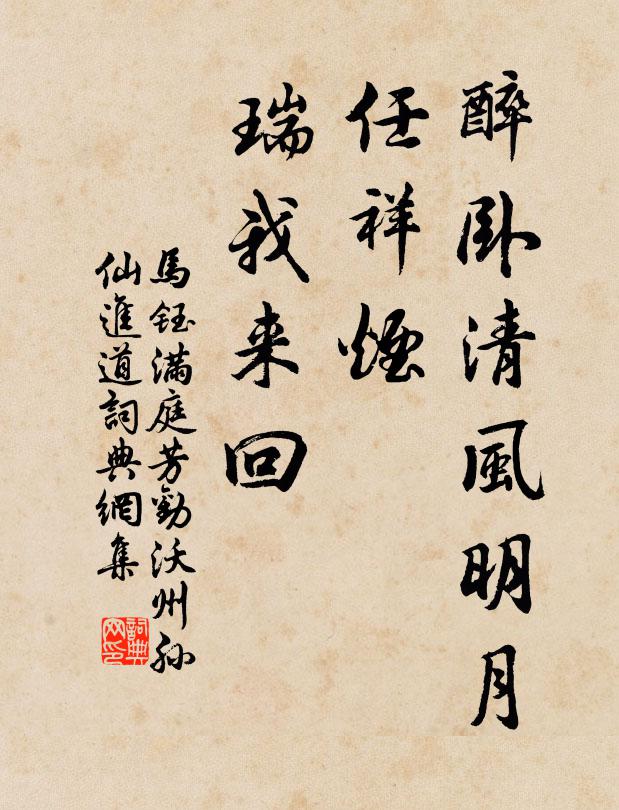 醉卧清風明月
任祥煙
瑞我来回
馬鈺滿庭芳勸沃州孙
仙進道詞典網集
詞典
网印